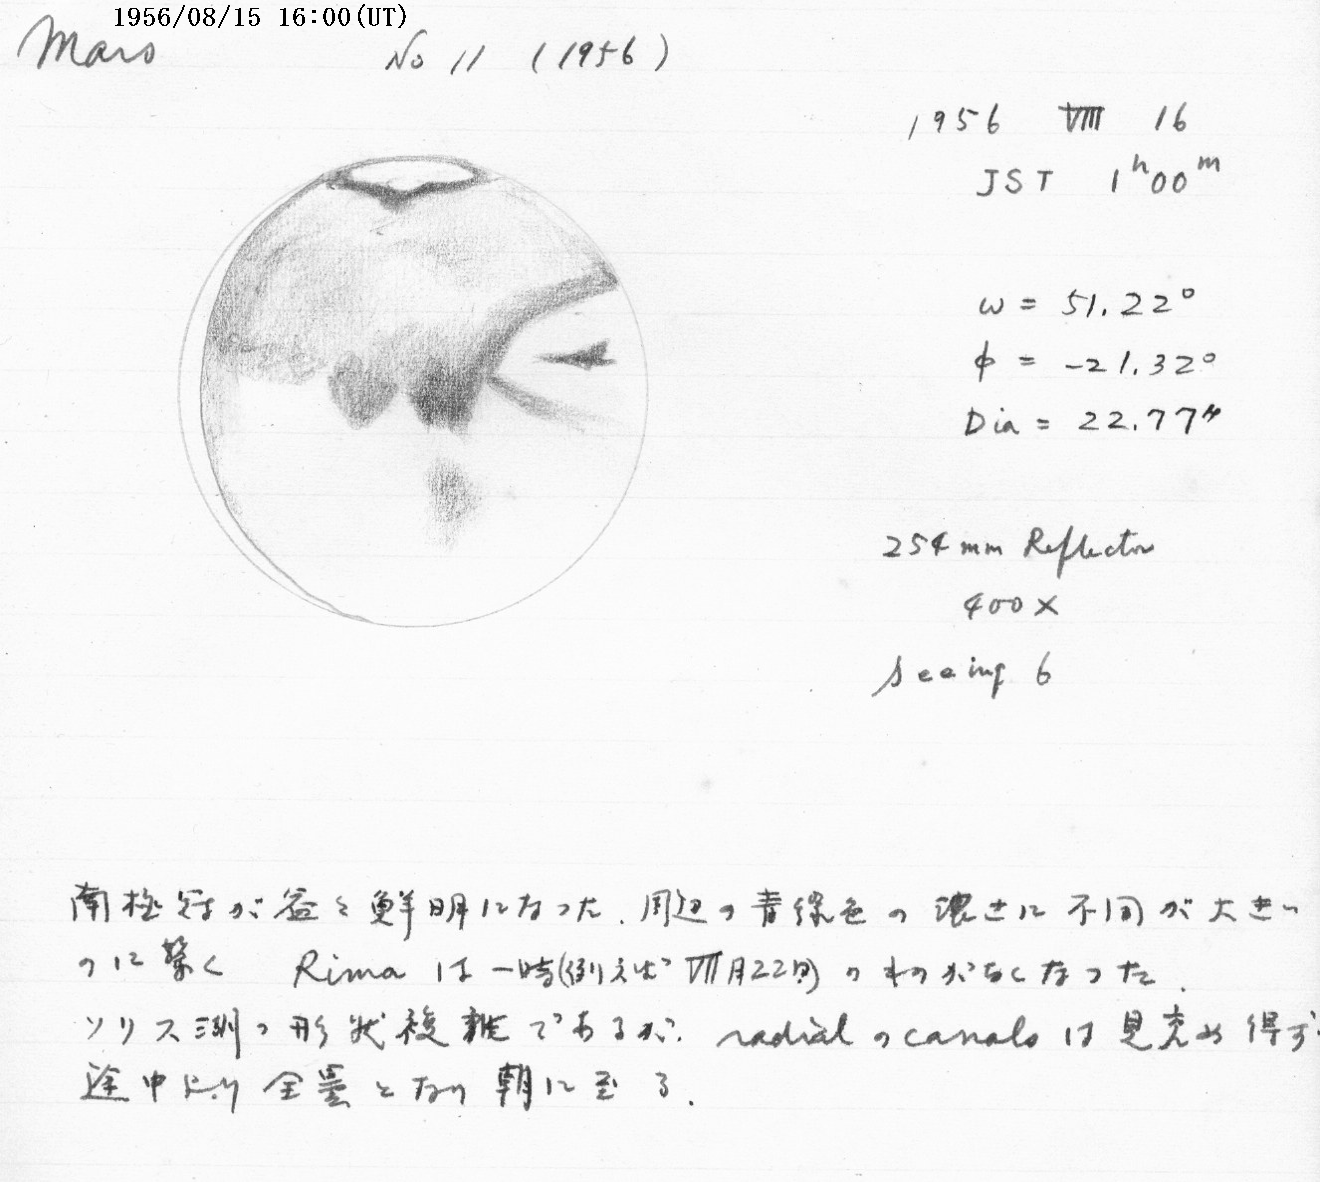 1956/08/15 16:00(UT)
Mars No 11 (1956)
1956 VIII 16
JST 1h00m
ω = 51.22°
φ = -21.32°
Dia = 22.77"
254mm Reflector
400×
Seeing 6
南極冠が益々鮮明になった. 周辺の青緑色の濃さに不同が大きい
のに驚く Rima は一時(例えば VII月22日)のものがなくなった.
ソリス湖の形状複雑であるが, radial の canals は見究め得ず
途中より全曇となり朝に至る.